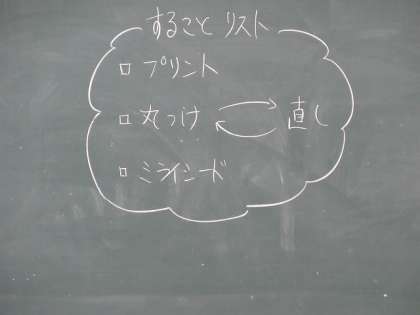 することリスト
□ プリント
□ 丸つけ 直し
□ ミライシード